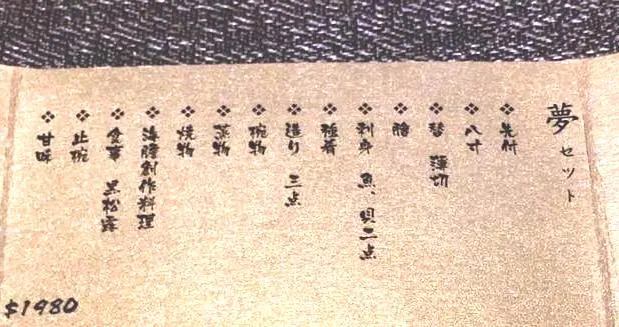 夢セット
❖ 先付
❖ 八寸
❖ 替 薄切
❖ 膾
❖ 刺身 魚、貝二点
❖ 種肴
❖ 造り 三点
❖ 椀物
❖ 蒸物
❖ 焼物
❖ 海膽創作料理
❖ 食事 黒松露
❖ 止椀
❖ 甘味
$1980